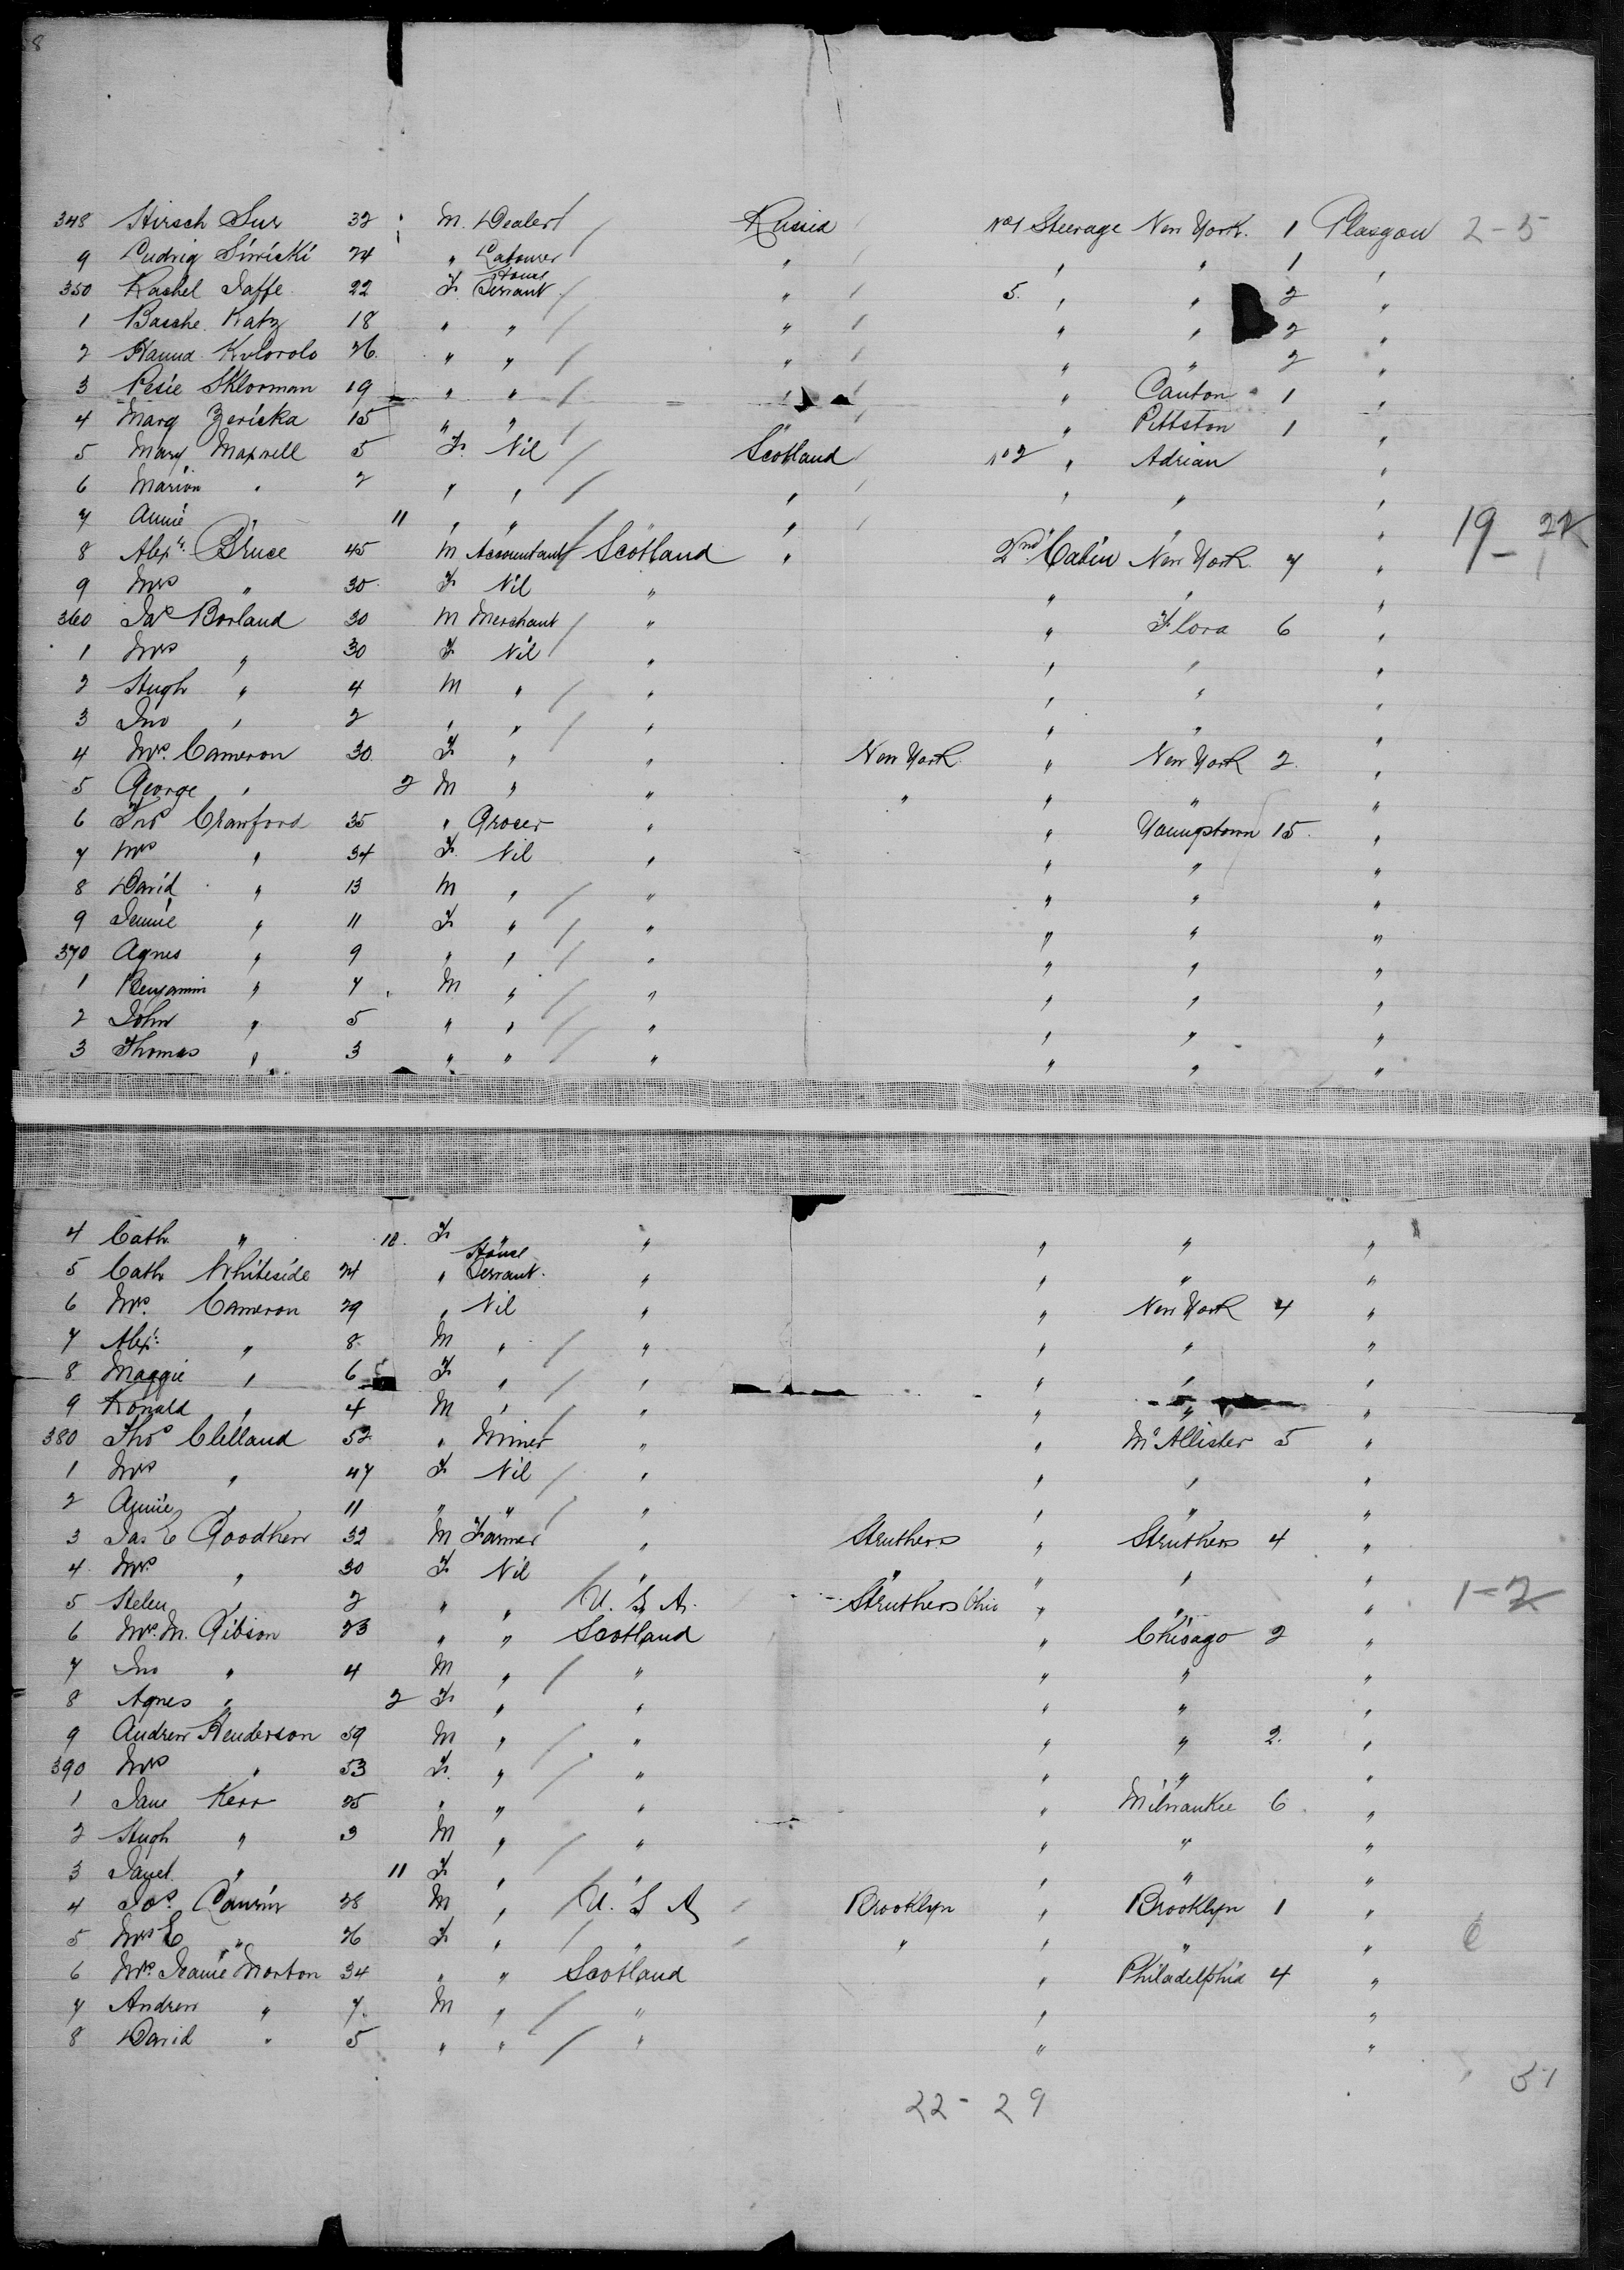 348 Hirsch Sur 32 M. Dealer Russia No 1 Steerage New York. 1 Glasgow 2-5
9 Ludwig 24 " Labourer " " " 1 "
350 Rachel Jaffe 22 F. House Servant " 5. " " 2 "
1 Basche Katz 18 " " " " " 2 "
2 26. " " " " " 2 "
3 Pesie Skloorman 19 " " " " Canton 1 "
4 Marg Zericka 15 " " " " Pittston 1 "
5 Mary Maxwell 5 F. Nil Scotland No 2 " Adrian "
6 Marion " 2 " " " " " "
7 Annie " 11 " " " " "
8 Alexr. Bruce 45 M Accountant Scotland " 2nd Cabin New York 7 " 19-
9 Mrs " 30 F Nil " " " "
360 Jas Borland 30 M Merchant " " Flora 6 "
1 Mrs " 30 F Nil " " " "
2 Hugh " 4 M " " " " "
3 Jno " 2 " " " " " "
4 Mrs. Cameron 30 F " " New York " New York 2. "
5 George " 2 M " " " " " "
6 Thos Crawford 35 " Grocer " " Youngstown 15. "
7 Mrs " 34 F. Nil " " " "
8 David " 13 M " " " " "
9 Jennie " 11 F " " " " "
370 Agnes " 9 " " " " " "
1 Benjamin " 7 M " " " " "
2 John " 5 " " " " " "
3 Thomas " 3 " " " " " "
4 Cath " 10. F " " " "
5 Cath Whiteside 24 " House Servant. " " " "
6 Mrs. Cameron 29 " Nil " " New York 4 "
7 Alexr. " 8 M " " " " "
8 Maggie " 6 F " " " " "
9 Ronald " 4 M " " " " "
380 Thos Clelland 52 " Miner " " McAllister 5 "
1 Mrs " 47 F Nil " " " "
2 Annie " 11 " " " " " "
3 Jas E Goodhew 32 M Farmer " Struthers " Struthers 4 "
4 Mrs. " 30 F Nil " " " " "
5 Helen " 2 " " U. S. A. Struthers Ohio " " " 1-2
6 Mrs. M. Gibson 23 " " Scotland " Chicago 2 "
7 Jno " 4 M " " " " "
8 Agnes " 2 F " " " " "
9 Andrew Henderson 59 M " " " " 2. "
390 Mrs " 53 F. " " " " "
1 Jane Kerr 25 " " " " Milwaukee 6 "
2 Hugh " 3 M " " " " "
3 Janet " 11 F " " " " "
4 Jas. 28 M " U. S A Brooklyn " Brooklyn 1 "
5 Mrs E " 26 F " " " " " "
6 Mrs. Jeanie Morton 34 " " Scotland " Philadelphia 4 "
7 Andrew " 7. M " " " "
8 David " 5 " " " " "
22-29